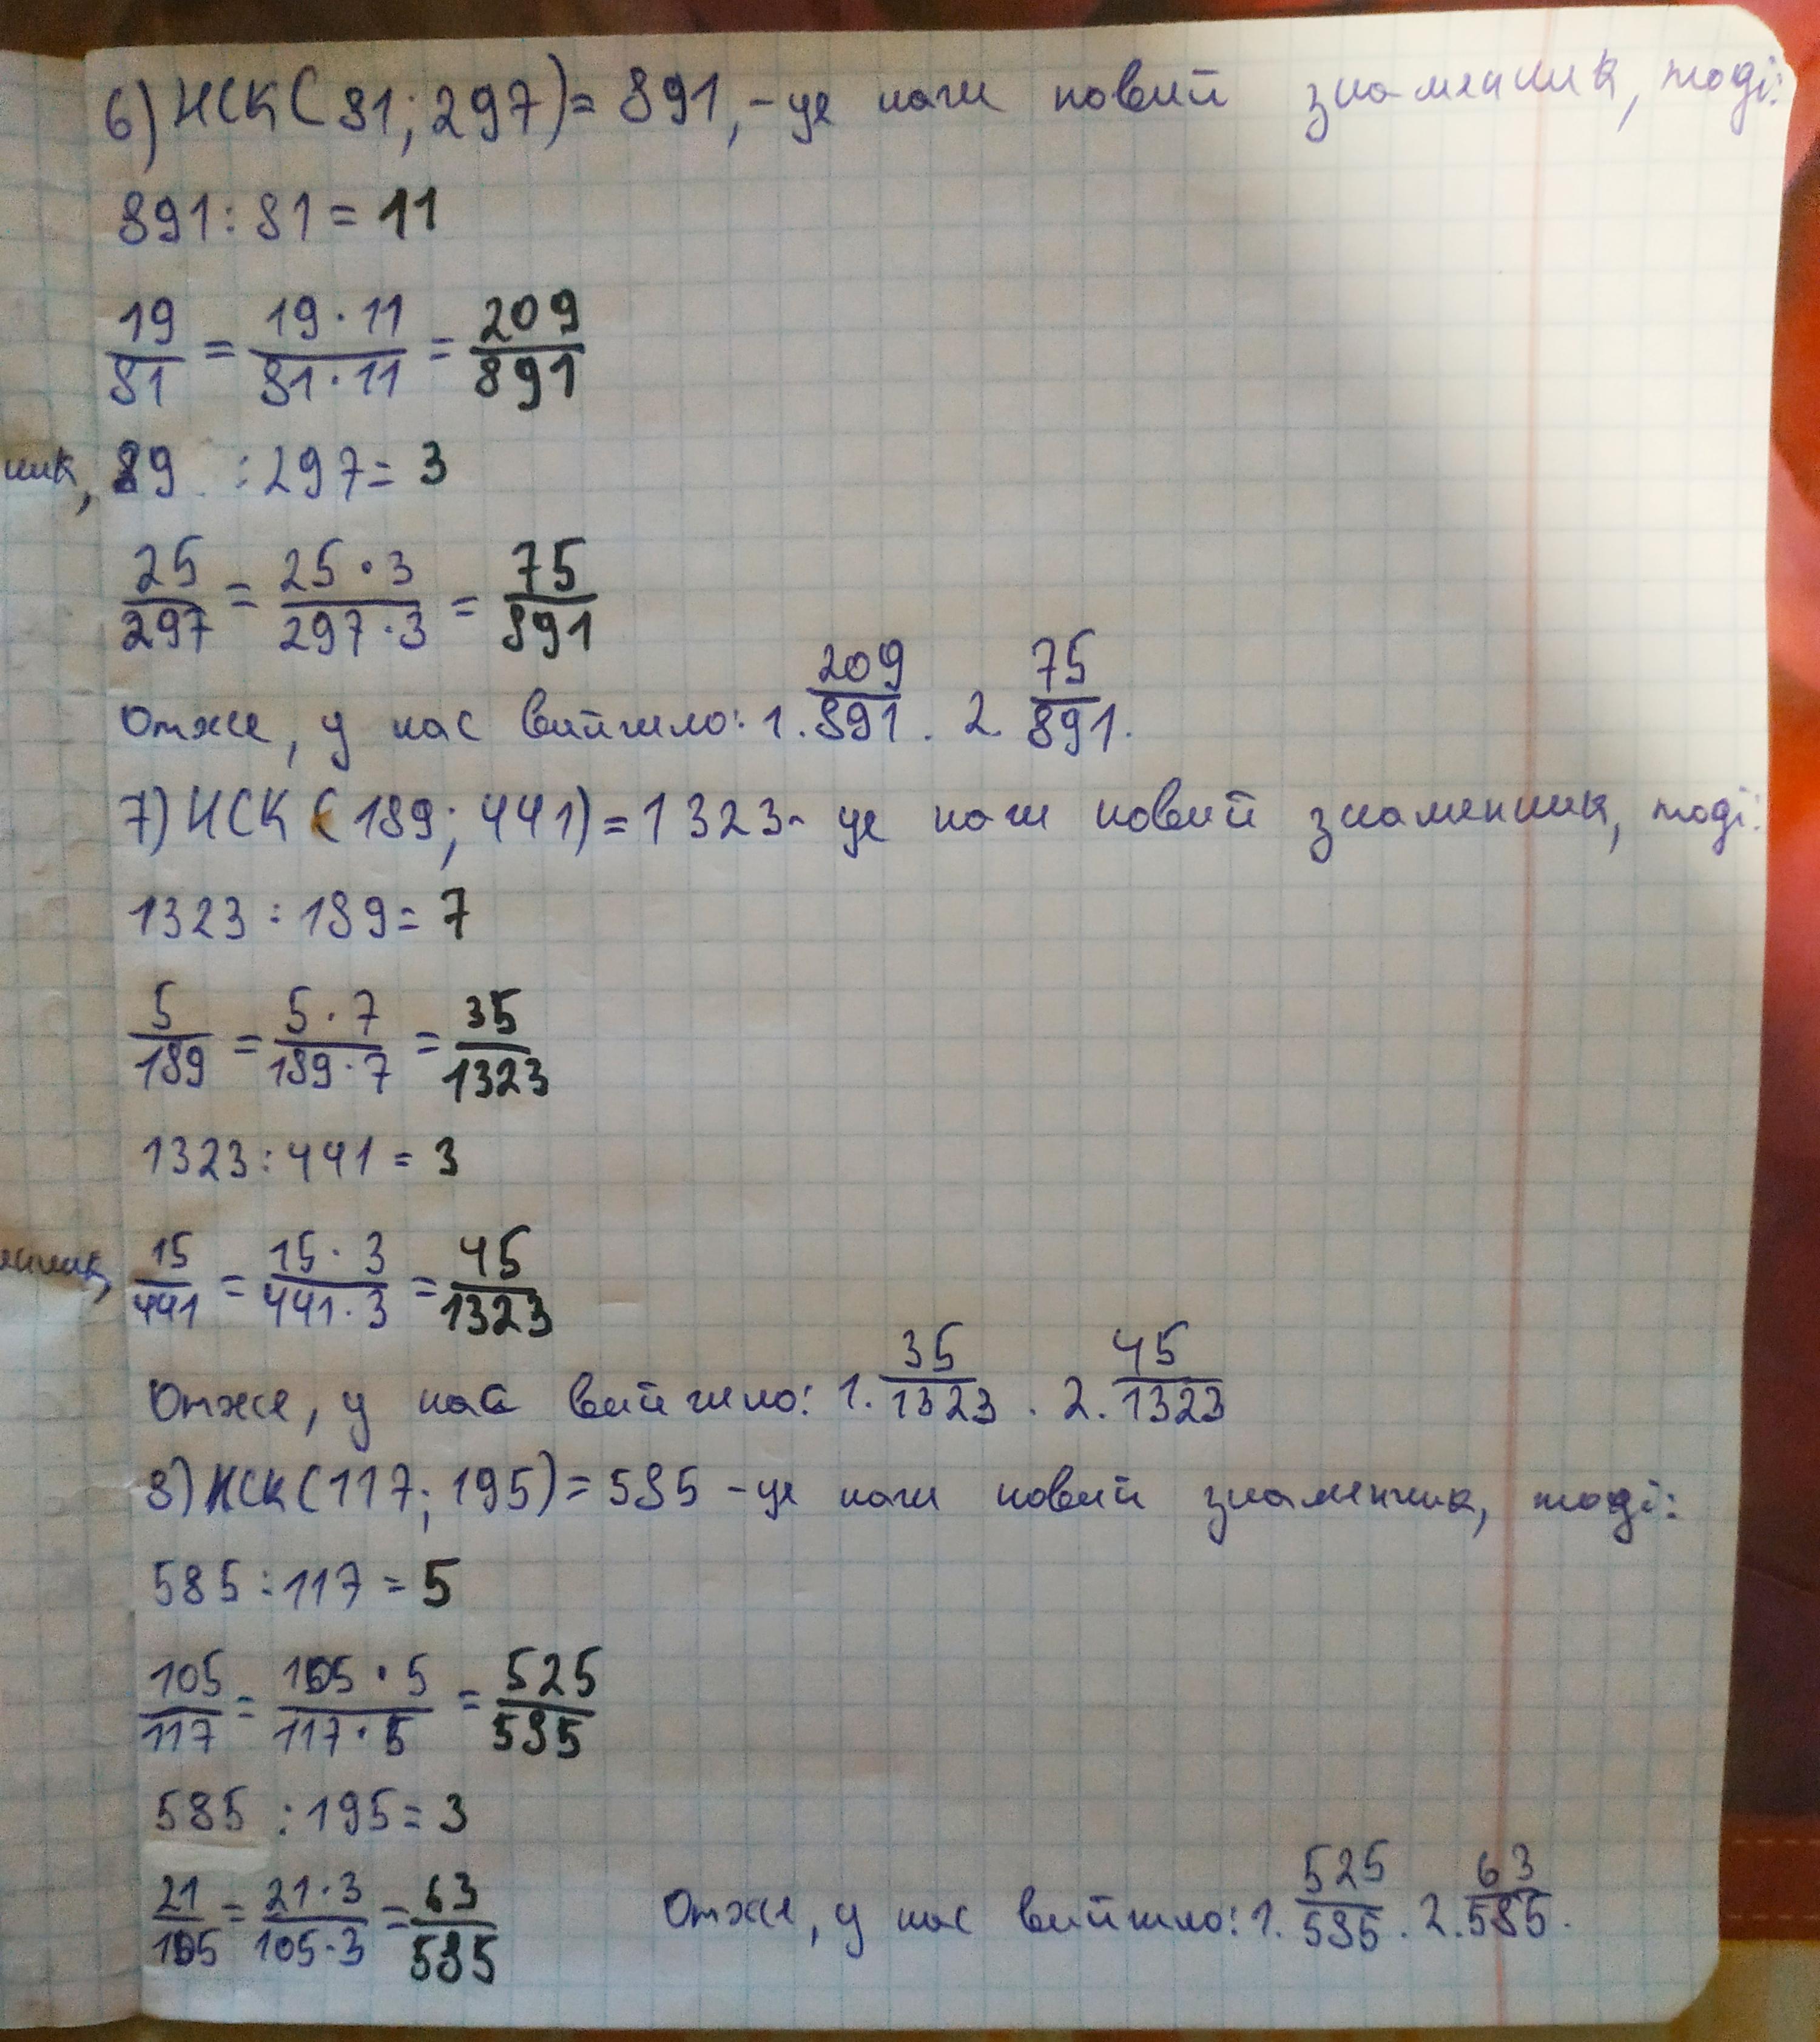 6) НСК(81; 297) = 891, - це наш новий знаменник, тоді:
891 : 81 = 11
19/81 = 19 · 11/81 · 11 = 209/891
ник,
89 : 297 = 3
25/297 = 25 · 3/297 · 3 = 75/891
Отже, у нас вийшло: 1. 209/891. 2. 75/891.
7) НСК (189; 441) = 1323 - це наш новий знаменник, тоді:
1323 : 189 = 7
5/189 = 5 · 7/189 · 7 = 35/1323
1323 : 441 = 3
15/441 = 15 · 3/441 · 3 = 45/1323
Отже, у нас вийшло: 1. 35/1323. 2. 45/1323
8) НСК(117; 195) = 585 - це наш новий знаменник, тоді:
585 : 117 = 5
105/117 = 105 · 5/117 · 5 = 525/585
585 : 195 = 3
21/105 = 21 · 3/105 · 3 = 63/585 Отже, у нас вийшло: 1. 525/585. 2. 63/585.